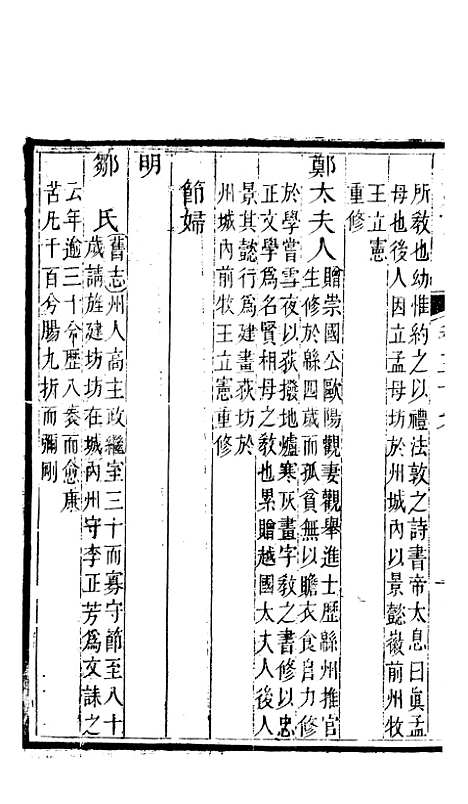 所教也幼惟約之以禮法敦之詩書帝太息曰眞孟
母也後人因立孟母坊於州城內以景懿徽前州牧
王立憲
重修
鄭太夫人贈崇國公歐陽觀妻觀舉進士歷緜州推官
生修於緜四歲而孤貧無以贍衣食自力修
於學嘗雪夜以荻撥地爐寒灰畫字教之書修以忠
正文學爲名賢相母之教也累贈越國太夫人後人
景其懿行爲建畫荻坊於
州城內前牧王立憲重修
節婦
明
鄒氏舊志州人高主政繼室三十而寡守節至八十
歲請旌建坊坊在城內州守李正芳爲文誄之
云年逾三十兮歷八袠而愈康
苦凡千百兮腸九折而彌剛